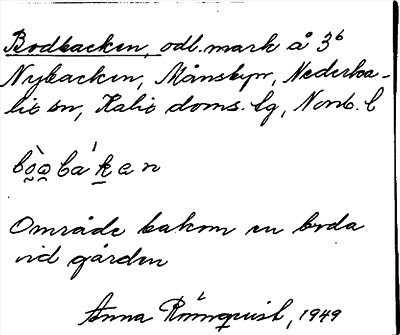 Bodbacken, odl. mark å 3⁶
Nybacken, Månsbyn, Nederka-
lix sn, Kalix doms. lg, Norrb. l
Område bakom en boda
vid gården
Anna Rönnquist, 1949